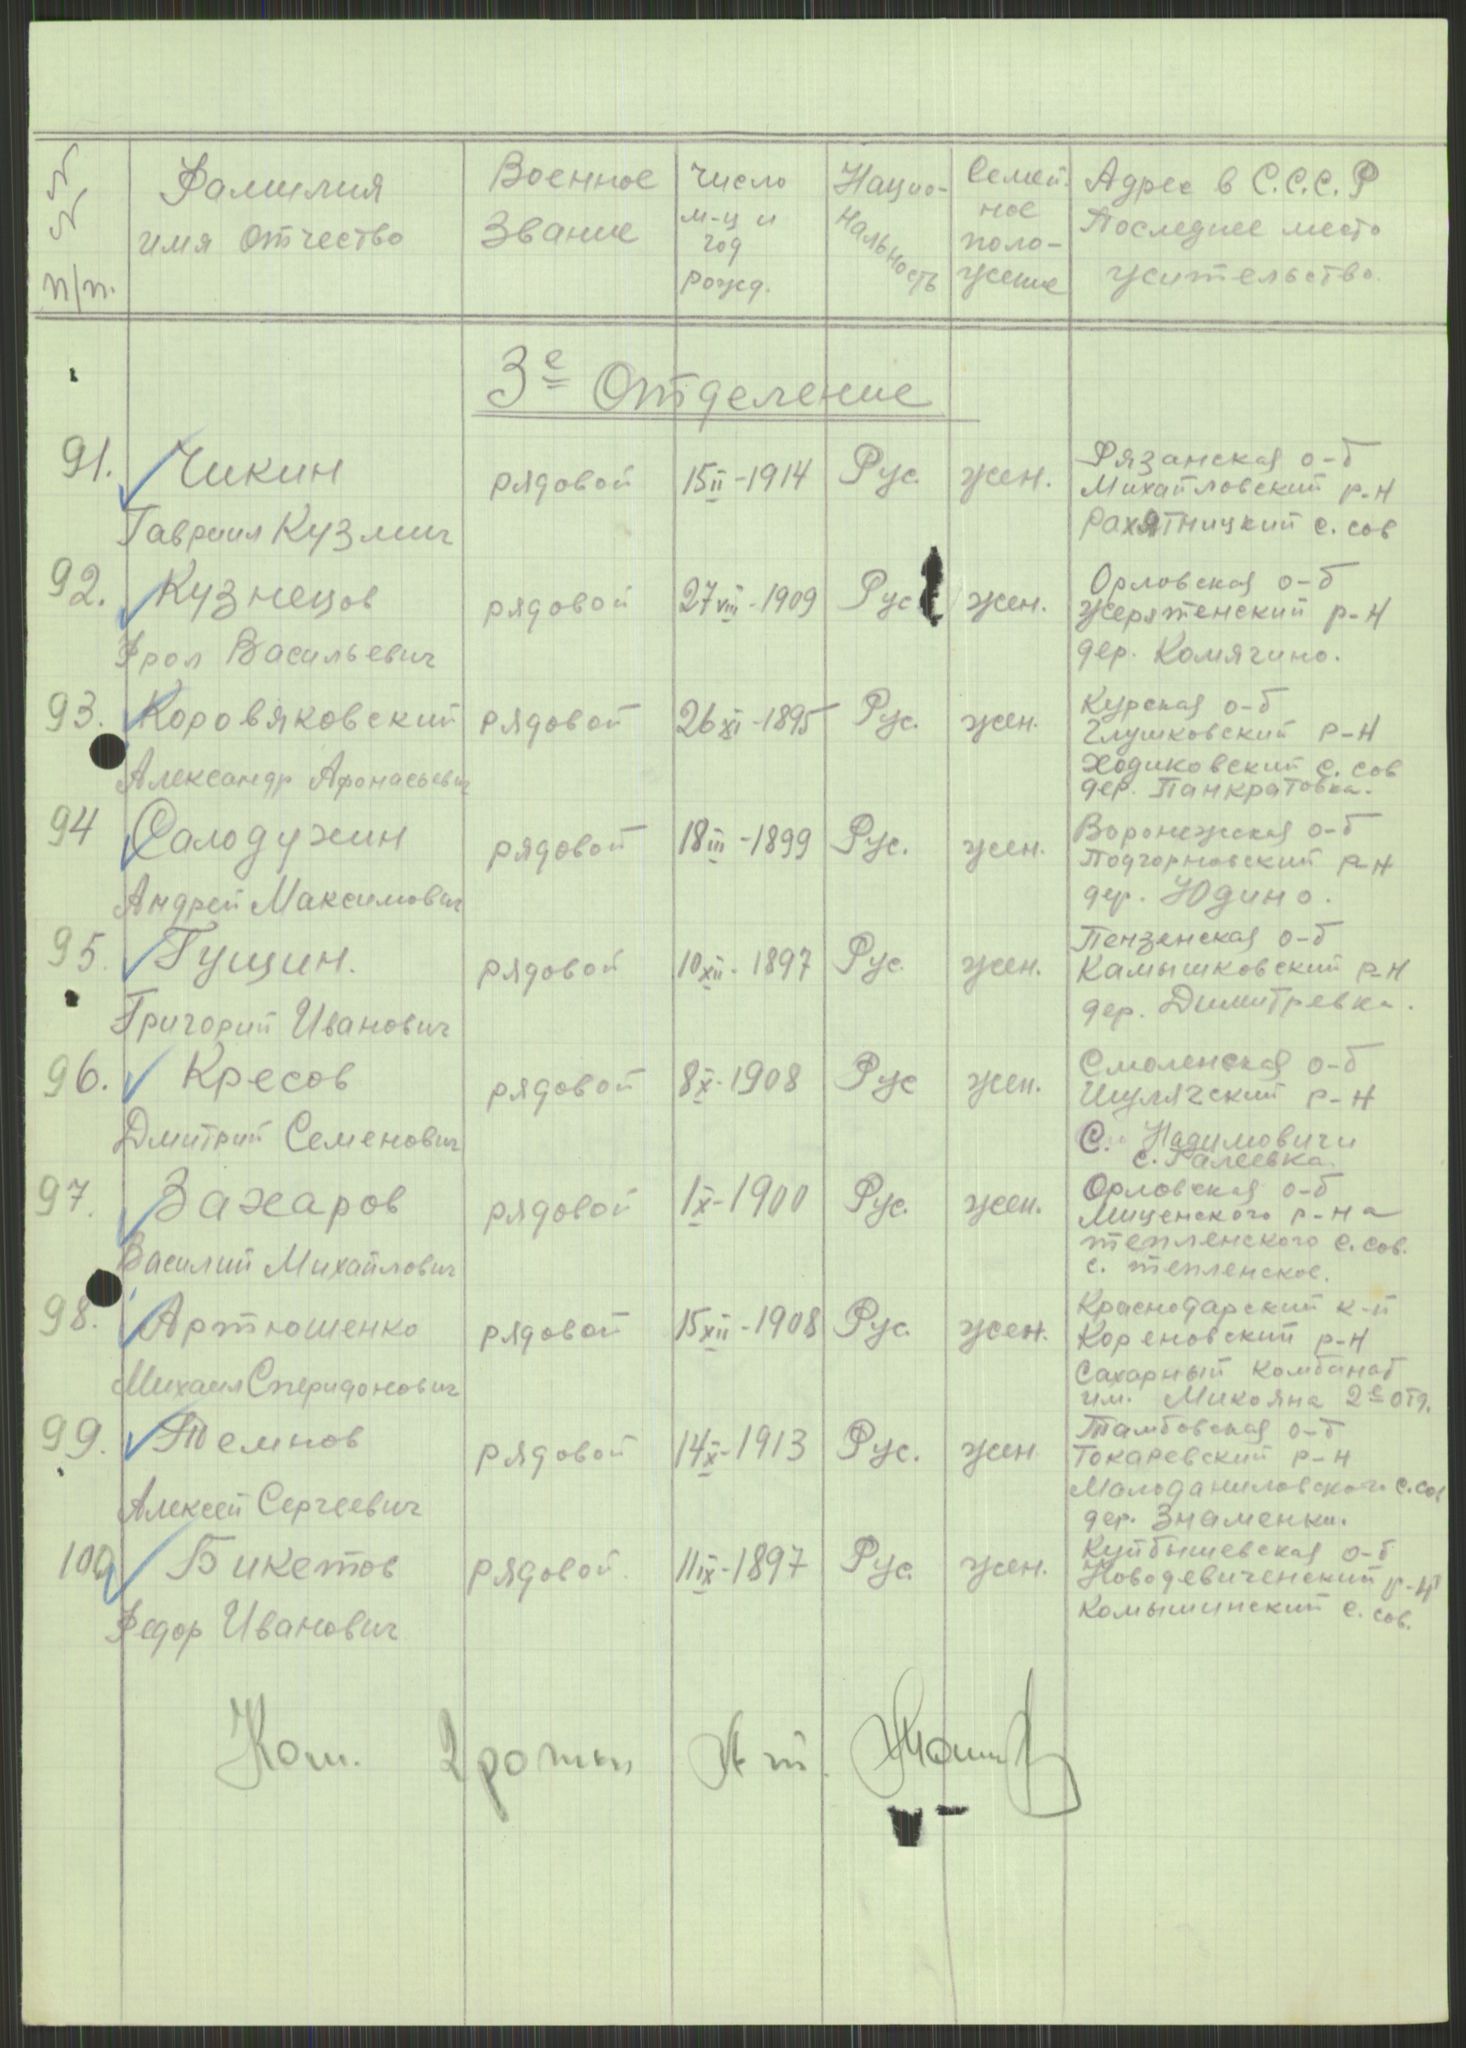 № № п/п. Фамилия имя отчество Военное Звание Число м-ц и год рожд. Нацио-нальность Семей-ное поло-жение Адрес в С.С.С.Р Последнее место жительство.
3е Отделение
91. Чикин рядовой 15 II-1914 Рус. жен. Рязанская о-б
Михайловский р-н
Гавриил Кузмич Рахятницкий с. сов
92. Кузнецов рядовой 27 VIII-1909 Рус жен. Орловская о-б
Жерятенский р-н
Фрол Васильевич дер. Комягино.
93. Коровяковский рядовой 26 XI-1895 Рус. жен. Курская о-б
Глушковский р-н
Александр Афонасьевич Ходиковский с. сов
дер. Панкратовка.
94 Салодухин рядовой 18 III-1899 Рус. жен. Воронежская о-б
Подгорновский р-н
Андрей Максимович дер. Юдино.
95. Гущин. рядовой 10 XII-1897 Рус. жен. Пензенская о-б
Камышковский р-н
Григорий Иванович дер. Димитревка.
96. Кресов рядовой 8 X-1908 Рус жен. Смоленская о-б
Шулячский р-н
Дмитрий Семенович С. Надимовичи
с. Галеевка.
97. Захаров рядовой 1 X-1900 Рус. жен. Орловская о-б
Миценского р-на
Василий Михайлович тепленского с. сов.
с. тепленское.
98. Артюшенко рядовой 15 XII-1908 Рус. жен. Краснодарский к-й
Кореновский р-н
Михаил Сперидонович Сахарный комбинат
им. Микояна 2е отд.
99. Темнов рядовой 14 X-1913 Рус. жен Тамбовская о-б
Токаревский р-н
Алексей Сергеевич Малоданиловского с. сов
дер. Знаменка.
100 Бикетов рядовой. 11 IX-1897 Рус. жен. Куйбышевская о-б
Новодевиченский р-н
Федор Иванович Комышинский с. сов.
Ком. 2 роты